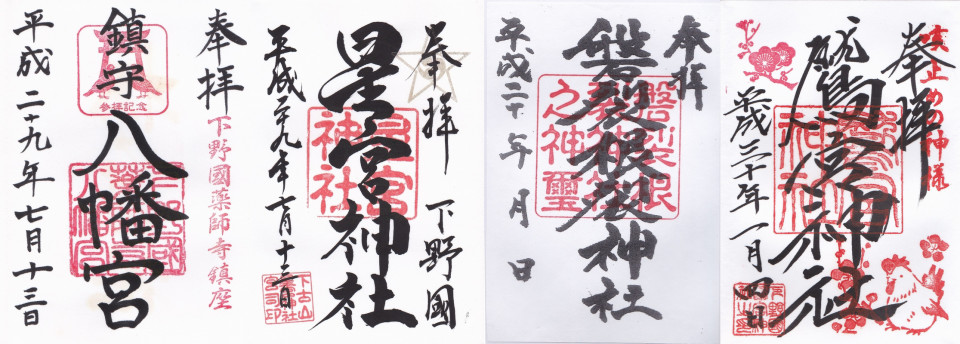 奉拝
下野國薬師寺鎮座
鎮守八幡宮
参拝記念
平成二十九年七月十三日
奉拝
下野國
星宮神社
星宮神社
平成二十九年七月十三日
奉拝
磐裂根裂神社
平成二十 年 月 日
夜止めの神様
奉拝
鷲宮神社
平成三十年一月四日